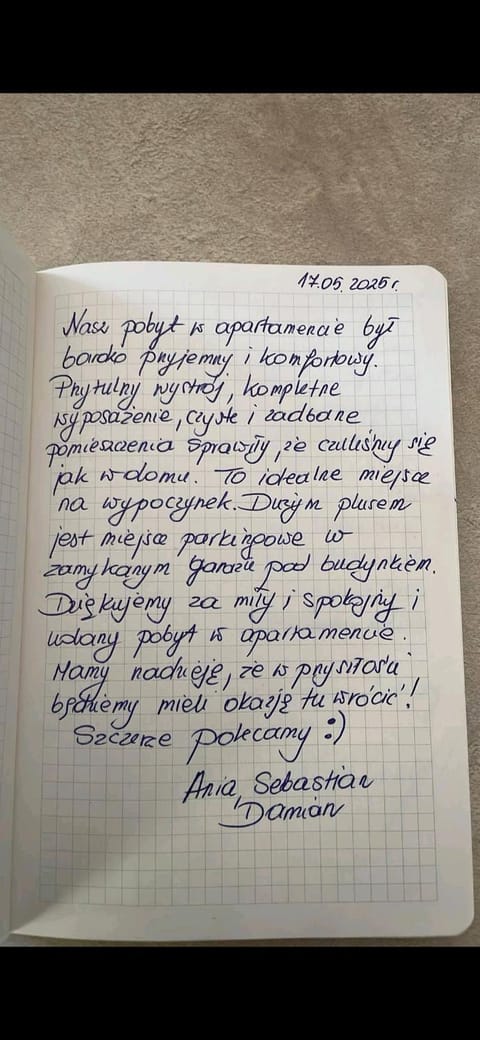 17.05.2025 r.
Nasz pobyt w apartamencie był
bardzo przyjemny i komfortowy.
Przytulny wystrój, kompletne
wyposażenie, czyste i zadbane
pomieszczenia sprawiły, że czuliśmy się
jak w domu. To idealne miejsce
na wypoczynek. Dużym plusem
jest miejsce parkingowe w
zamykanym garażu pod budynkiem.
Dziękujemy za miły i spokojny i
udany pobyt w apartamencie.
Mamy nadzieję, że w przyszłości
będziemy mieli okazję tu wrócić!
Szczerze polecamy :)
Ania, Sebastian
Damian